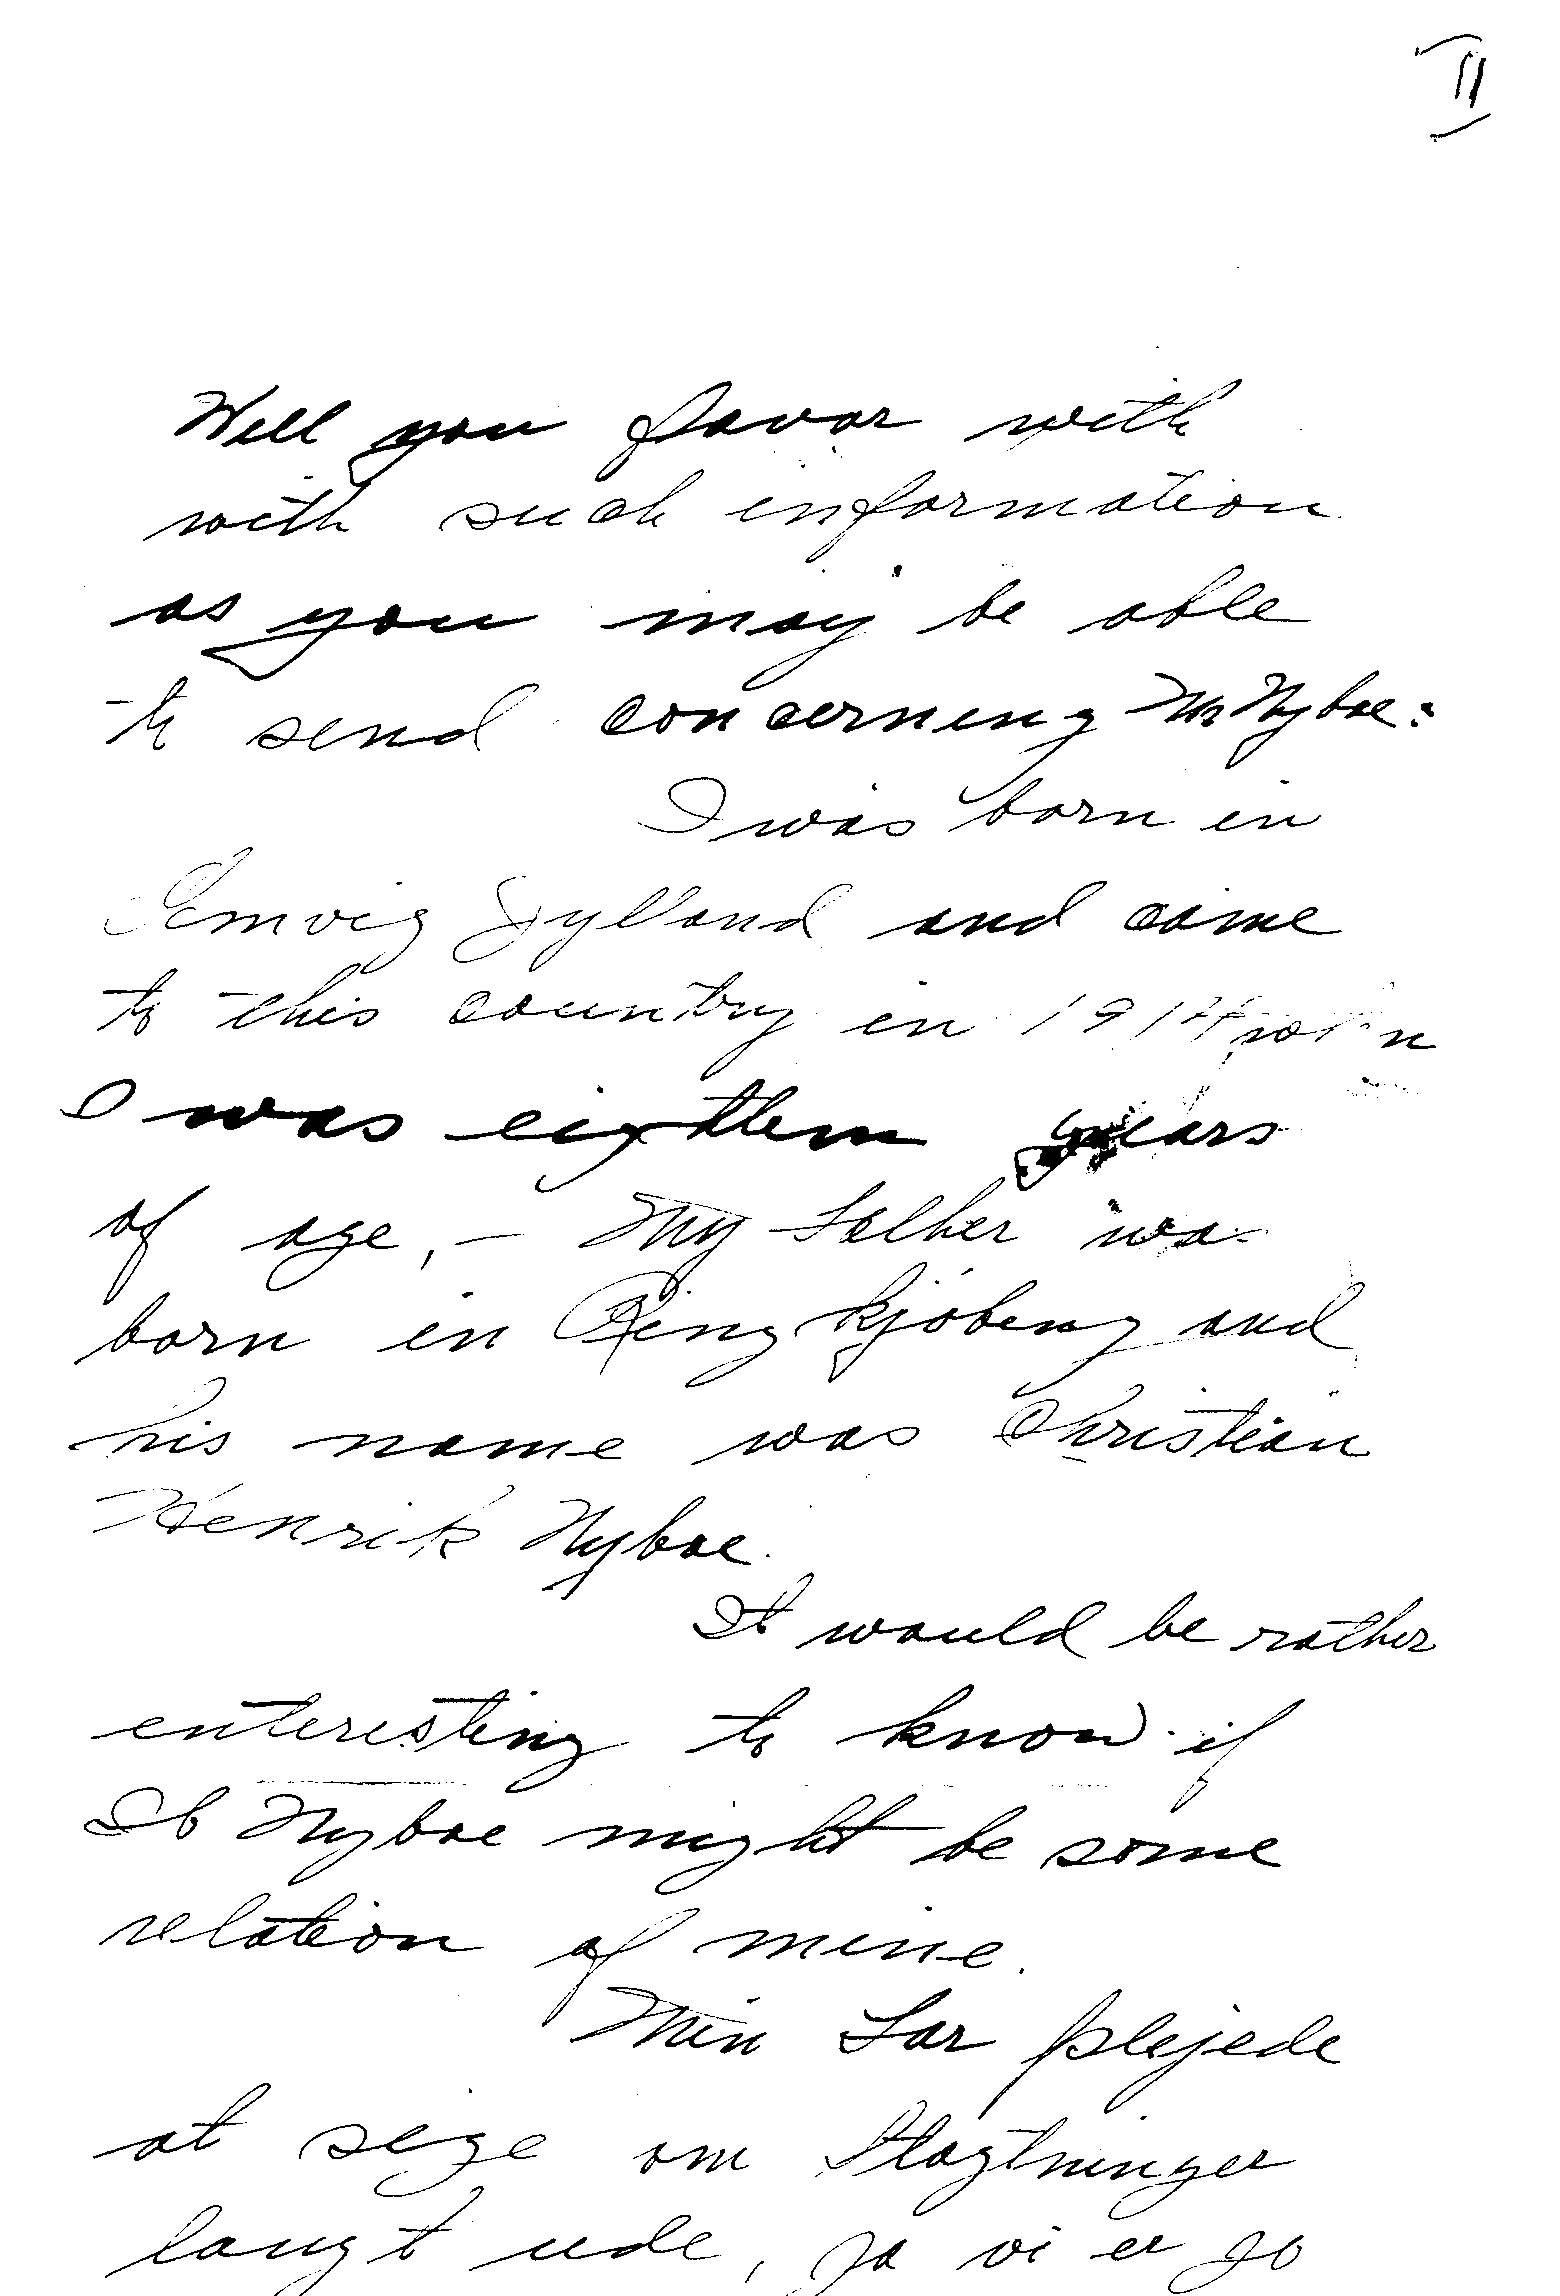 II
Will you favor with
with such information
as you may be able
to send concerning Mr Nyboe.
I was born in
Lemvig Jylland and came
to this country in 1914 when
I was eigthen years
of age, - My Father was
born in Ringkjöbeng and
his name was Christian
Henrik Nyboe.
It would be rather
enteresting to know if
Ib Nyboe might be some
relation of mine.
Min Far plejede
at sige om Slagtninger
langt ude, ja vi er jo